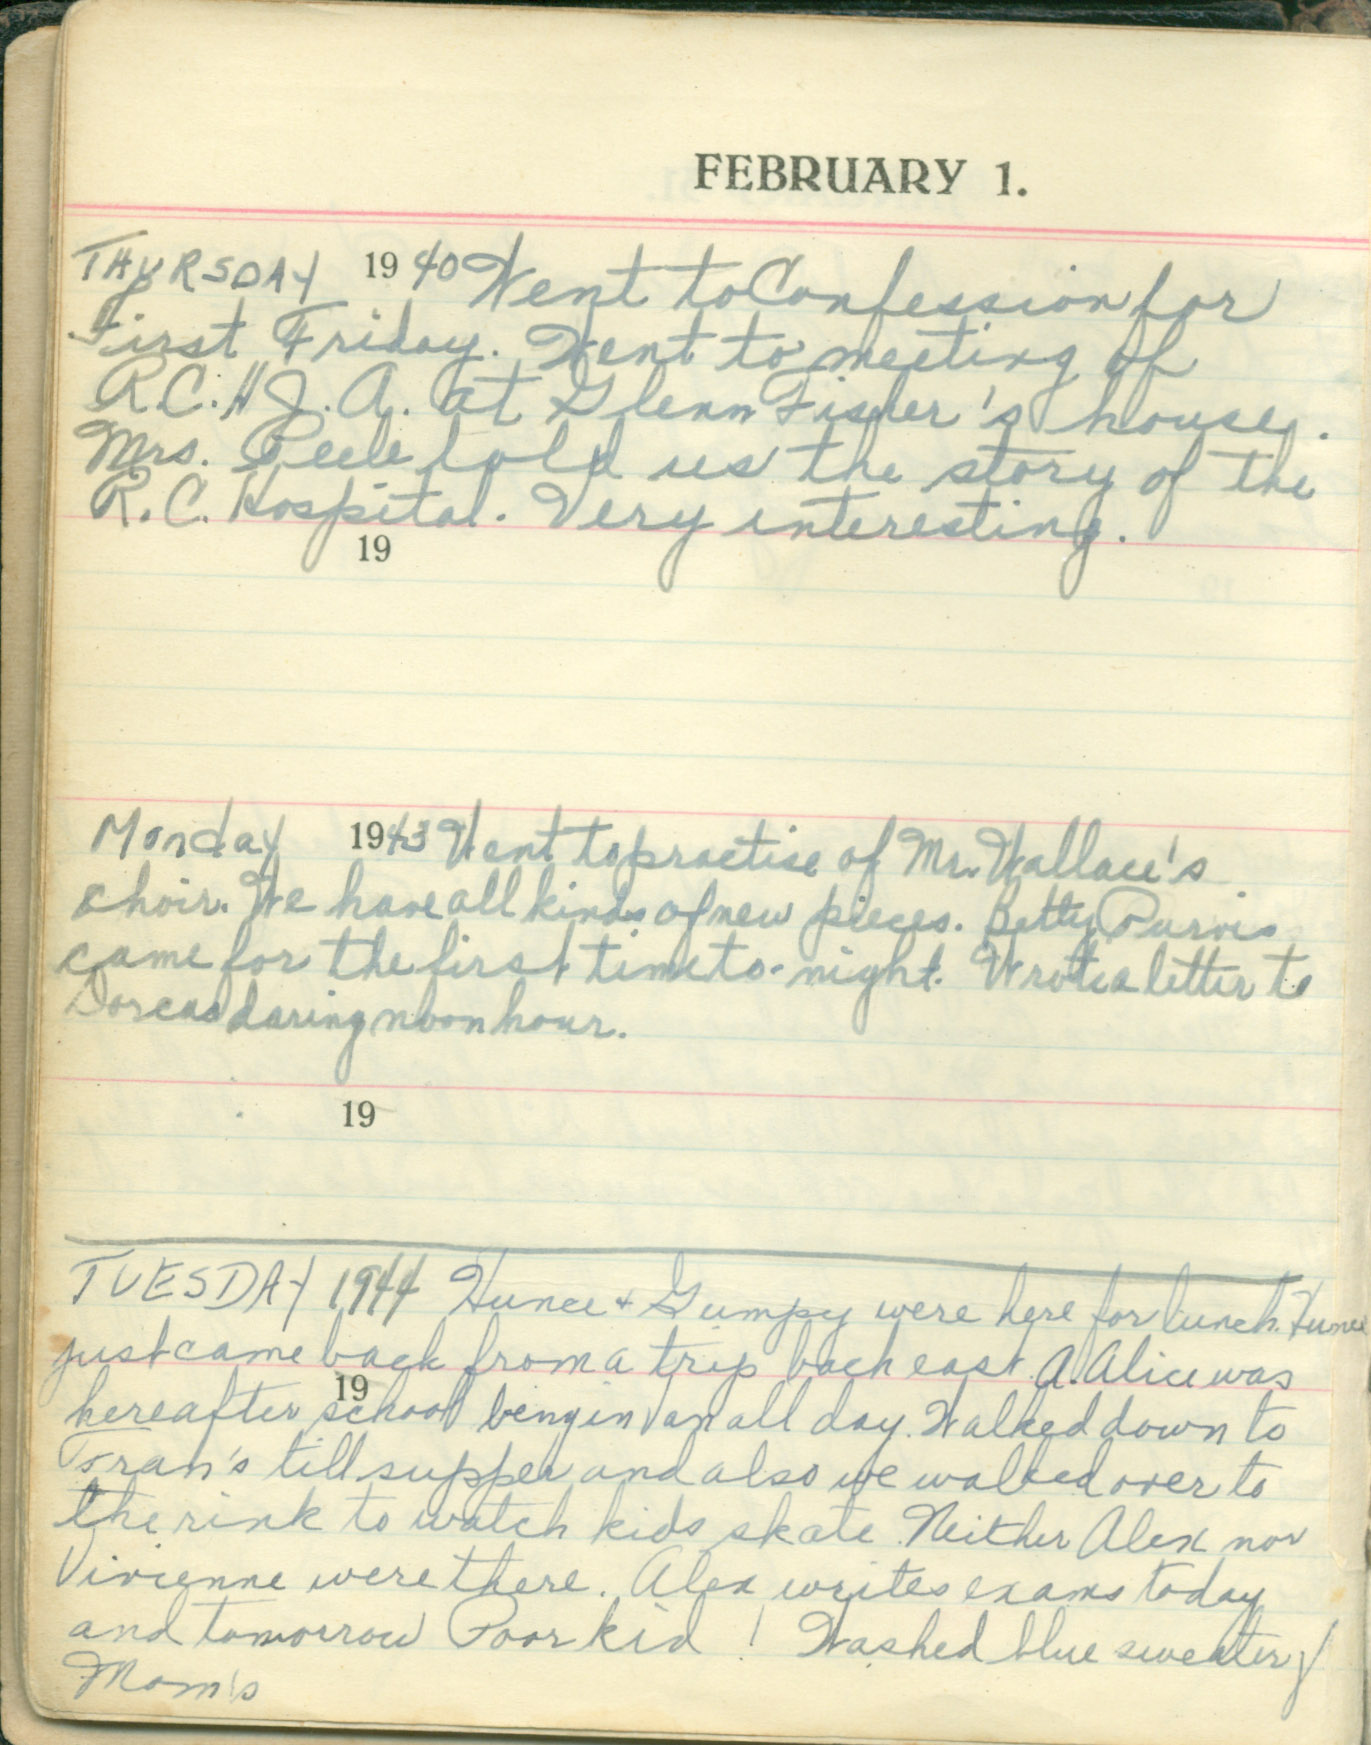 FEBRUARY 1.
THURSDAY 1940 Went to Confession for
First Friday. Went to meeting of
R.C.H.J.A. at Glenn Fisher's house.
Mrs. told us the story of the
R.C. Hospital. Very interesting.
19
Monday 1943 Went to practise of Mr. Wallace's
choir. We have all kinds of new pieces. Betty Purvis
came for the first time to-night. Wrote a letter to
Dorcas during noon hour.
19
TUESDAY 1944 Hunce + Gumpy were here for lunch. Hunce
just came back from a trip back east. A. Alice was
19
here after school being in an all day. Walked down to
Fran's till supper and also we walked over to
the rink to watch kids skate. Neither Alex nor
Vivienne were there. Alex writes exams today
and tomorrow Poor kid! Washed blue sweater of
Mom's